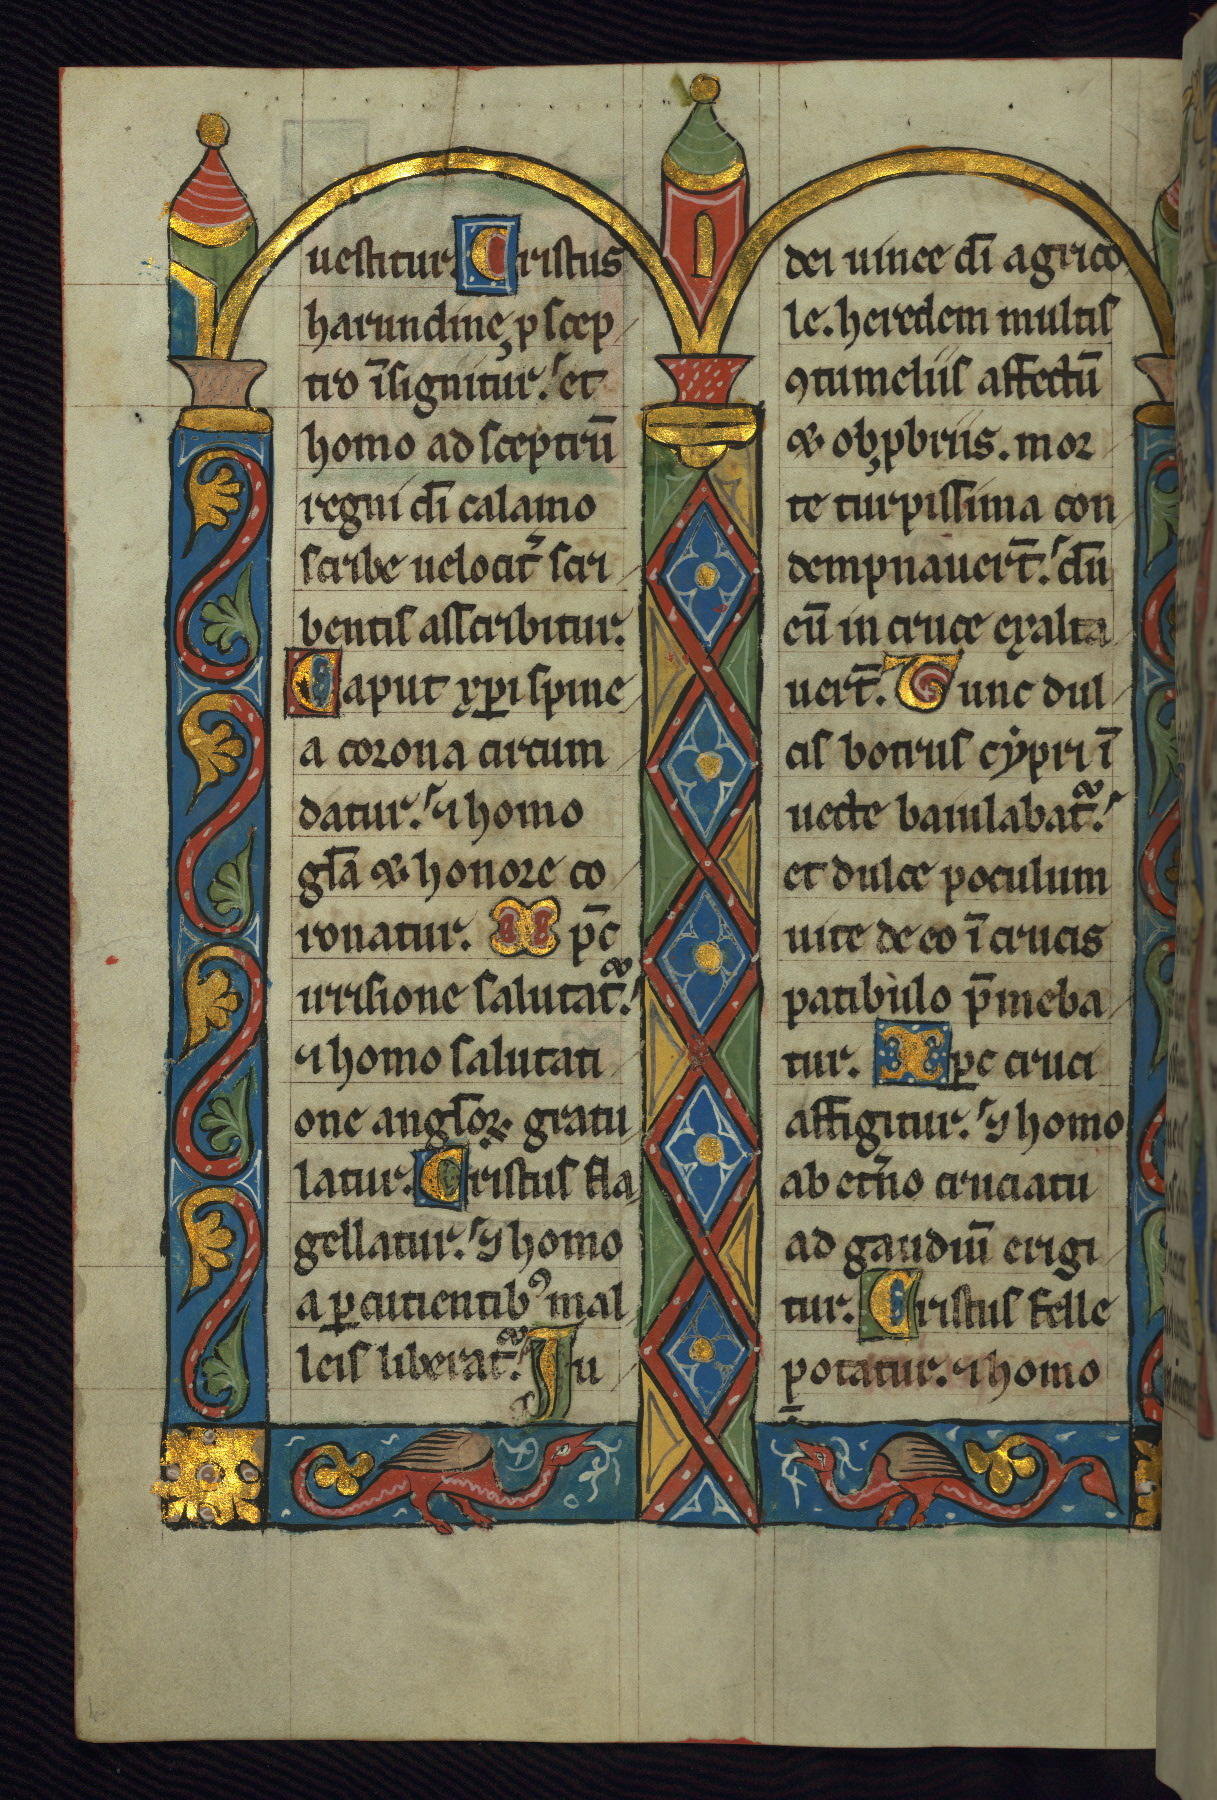 uestitur. Cristus
harundine ꝓ scep
tro īsignitur. et
homo ad sceptrū
regni dī calamo
scribe uelocit̄ scri
bentis asscribitur.
Caput xp̄i spine
a corona circum
datur. ⁊ homo
gl̄a & honore co
ronatur. Xp̄c
irrisione salutat᷑.
⁊ homo salutati
one angl̄oꝝ gratu
latur. Cristus fla
gellatur. ⁊ homo
a ꝑcutientibꝰ mal
leis liberat᷑. Iu
dei uinee dī agrico
le. heredem multis
ꝯtumeliis affectū
& obꝓbriis. mor
te turpissima con
dempnauer̄t. dū
eū in cruce exalta
uer̄t. Tunc dul
cis botrus cẏpri ī
uecte baiulabat᷑.
et dulce poculum
uite de eo ī crucis
patibulo p̄meba
tur. Xp̄c cruci
affigitur. ⁊ homo
ab et̄no cruciatu
ad gaudiū erigi
tur. Cristus felle
potatur. ⁊ homo